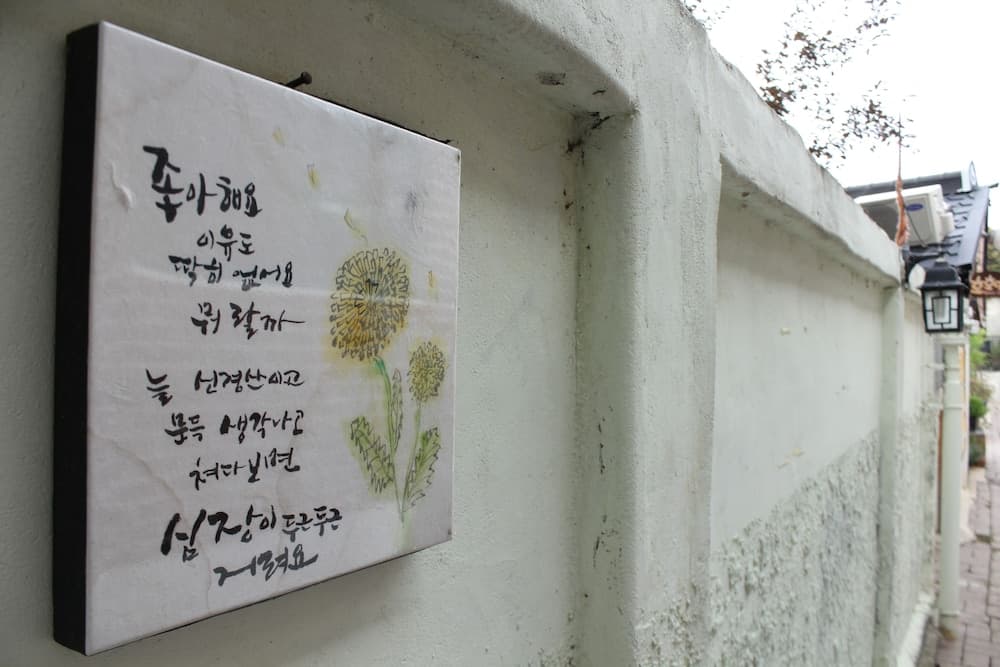 좋아해요
이유도
딱히 없어요
뭐랄까
늘 신경쓰이고
문득 생각나고
쳐다보면
심장이 두근두근
저려요